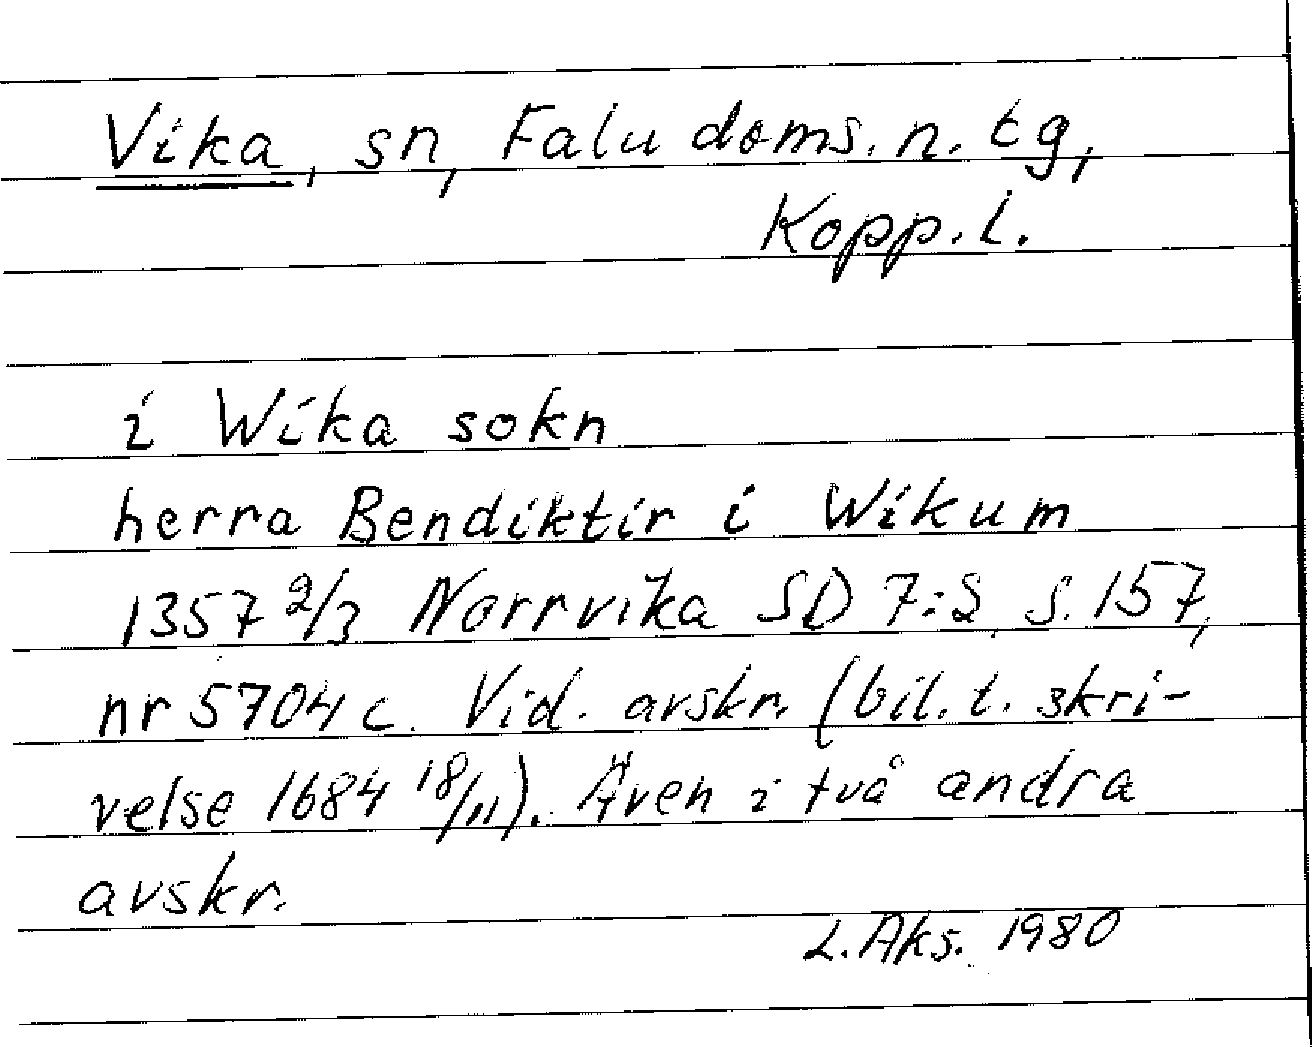 Vika, sn, Falu doms. n. tg,
Kopp. l.
i Wika sokn
herra Bendiktir i Wikum
1357 2/3 Norrvika SD 7:2, S. 157,
nr 5704 c. Vid. avskr. (bil. t. skri-
velse 1684 18/11). Även i två andra
avskr.
L. Aks. 1980